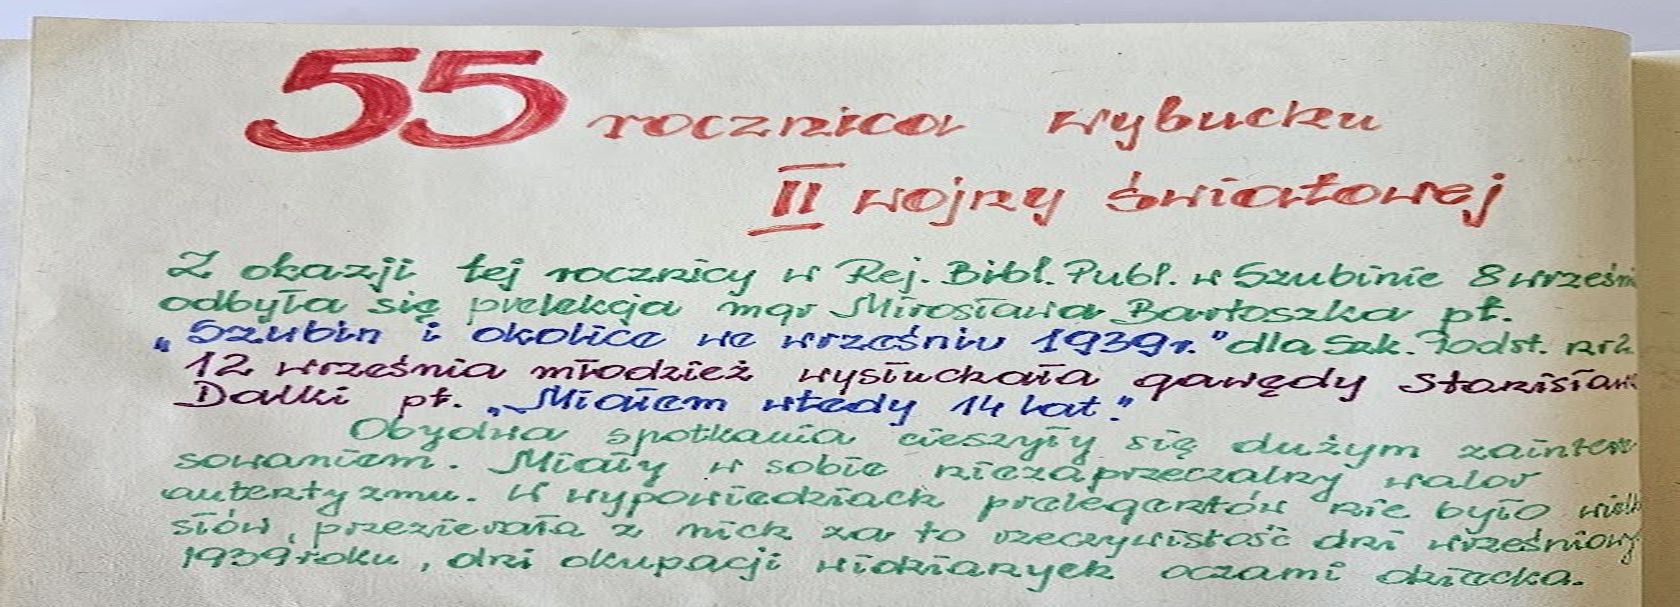 55 rocznica wybuchu
II wojny światowej
Z okazji tej rocznicy w Rej. Bibl. Publ. w Szubinie 8 wrześni
odbyła się prelekcja mgr Mirosława Bartoszka pt.
„Szubin i okolice we wrześniu 1939r." dla Szk. Podst. nr 2
12 września młodzież wysłuchała gawędy Stanisław
Dalki pt. „Miałem wtedy 14 lat".
Obydwa spotkania cieszyły się dużym zaintere
sowaniem. Miały w sobie niezaprzeczalny walor
autentyzmu. W wypowiedziach prelegentów nie było wielk
słów, przezierała z nich za to rzeczywistość dni wrześniowy
1939 roku, dni okupacji widzianych oczami dziecka.